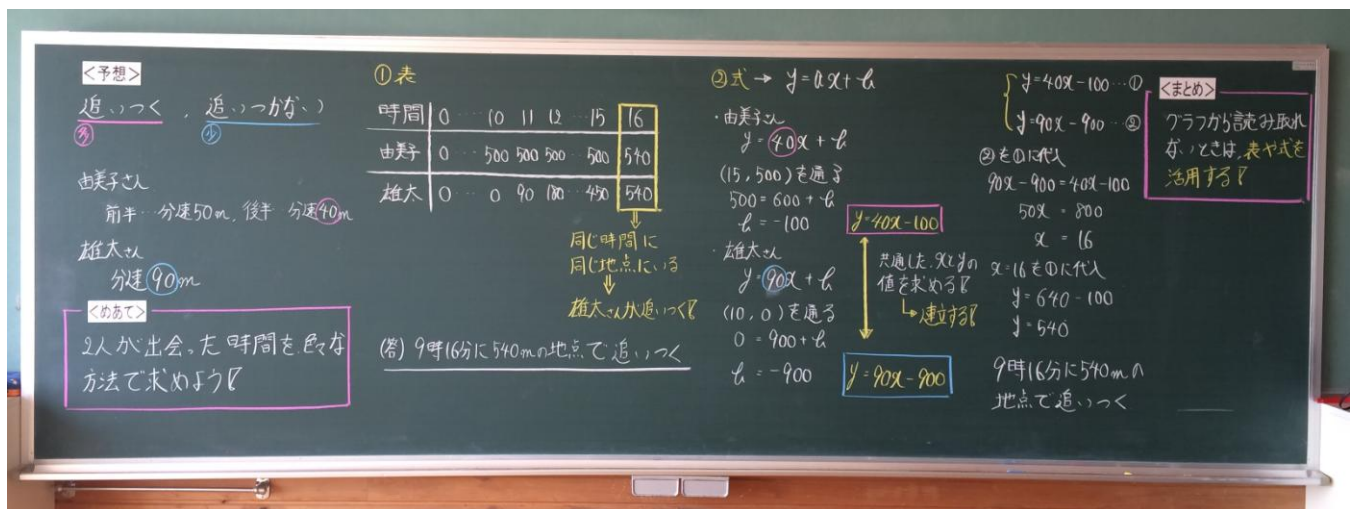 <予想>
追いつく , 追いつかない
多 少
由美子さん
前半…分速50m, 後半…分速40m
雄太さん
分速90m
<めあて>
2人が出会った時間を色々な
方法で求めよう!
①表
時間 0 … 10 11 12 … 15 16
由美子 0 … 500 500 500 … 500 540
雄太 0 … 0 90 180 … 450 540
同じ時間に
同じ地点にいる
雄太さんが追いつく!
(答) 9時16分に540mの地点で追いつく
②式 → y=ax+b
・由美子さん
y=40x+b
(15, 500)を通る
500=600+b
b=-100
y=40x-100
・雄太さん
y=90x+b
(10, 0)を通る
0=900+b
b=-900
y=90x-900
共通した、xとyの
値を求める!
→連立する!
y=40x-100…①
y=90x-900…②
②を①に代入
90x-900=40x-100
50x=800
x=16
x=16を①に代入
y=640-100
y=540
9時16分に540mの
地点で追いつく
<まとめ>
グラフから読み取れ
ないときは、表や式を
活用する!